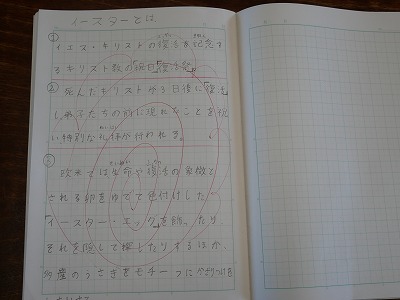 イースターとは
① イエス・キリストの復活を記念す
るキリスト教の「祝日」「復活祭」
② 死んだキリストが3日後に「復活」
し弟子たちの前に現れたことを祝
い特別な礼拝が行われる。
③
欧米では生命や復活の象徴と
される卵をゆでて色付けした
「イースター・エッグ」を飾ったり
それを隠して探したりするほか、
多産のうさぎをモチーフに